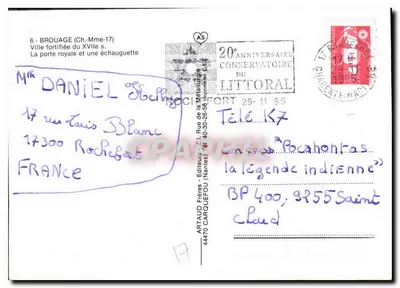 6 - BROUAGE (Ch.-Mme-17)
Ville fortifiée du XVIIe s.
La porte royale et une échauguette
AS
20e ANNIVERSAIRE
CONSERVATOIRE
DU
LITTORAL
ROCHEFORT 29-11 95
CHARENTE-MARITIME
Mlle DANIEL
17 rue Louis Blanc
17300 Rochefort
FRANCE
ARTAUD Frères - Editeurs
44470 CARQUEFOU (Nantes) Tél 40-30-26-
Télé K7
concours "Pocahontas
la légende indienne"
BP 400, 9255 Saint
Cloud
17